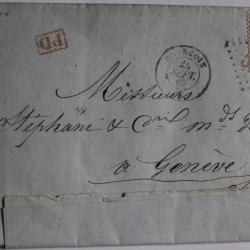 P.D.
24
SEPT.
Messieurs
Stéphani & Cie mds
à Genève